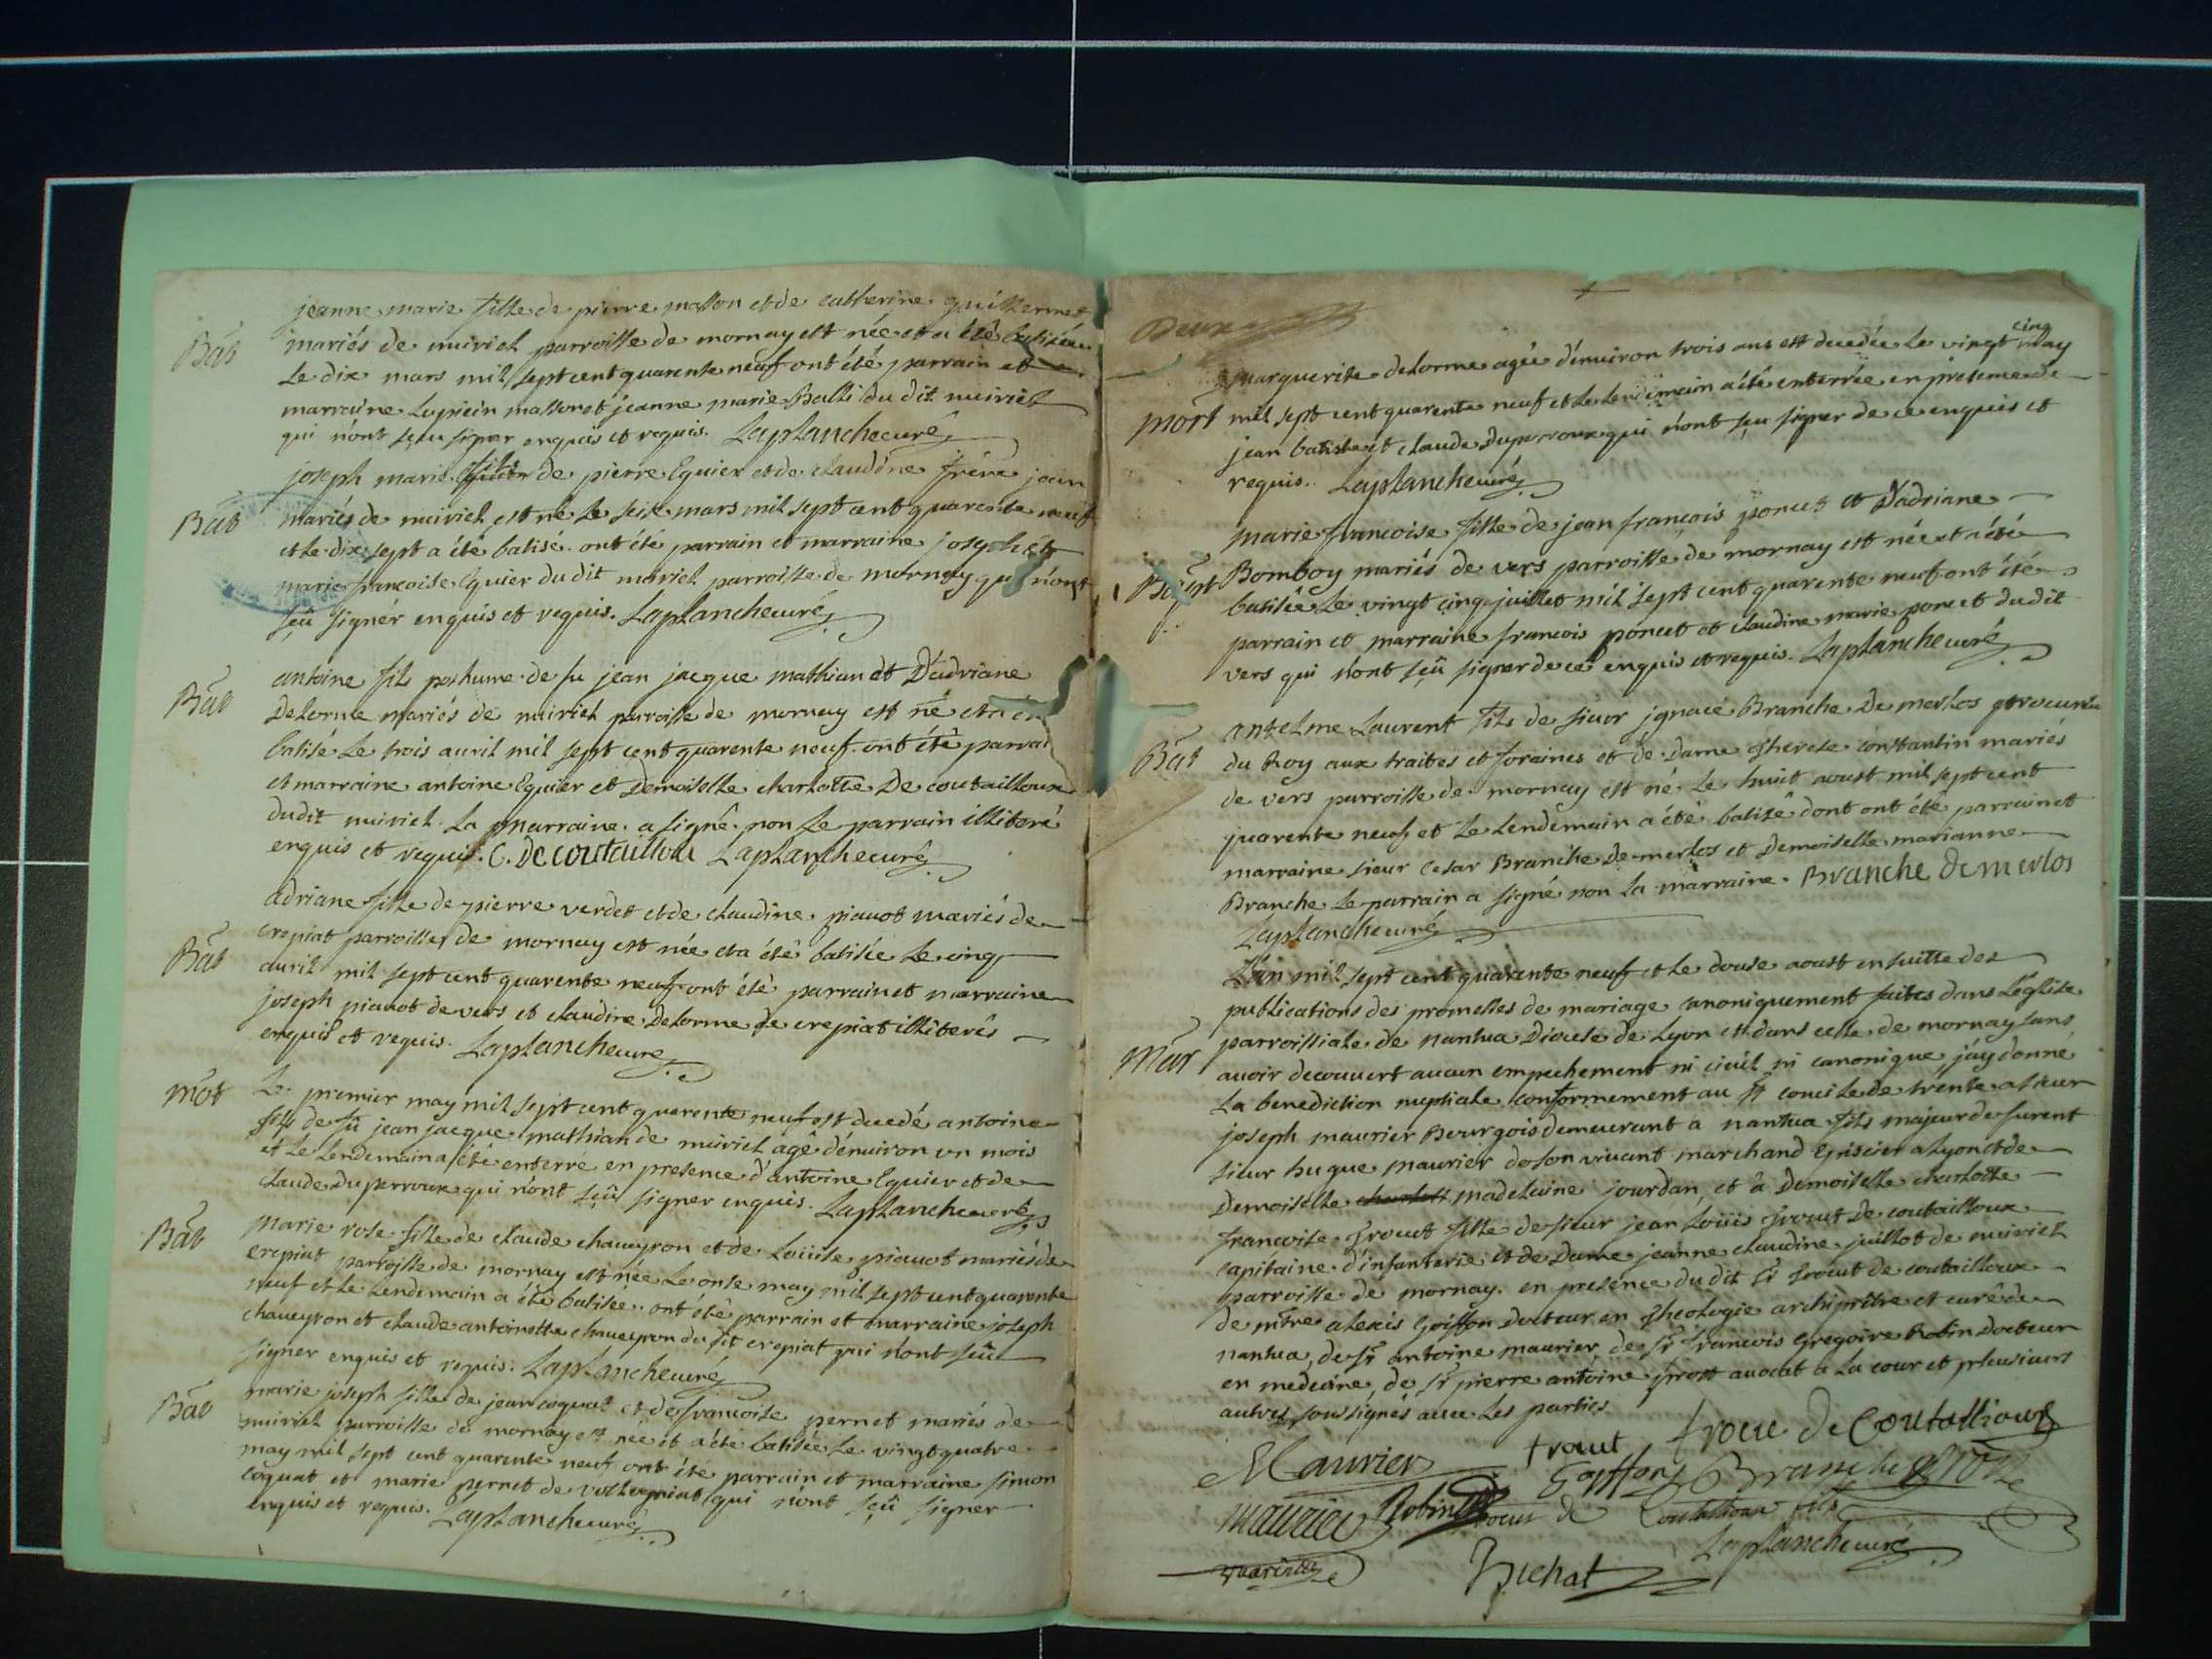 jeanne marie fille de pierre masson et de catherine guillermet
Bat
mariés de nuiriel parroisse de mornay est née et a été batisée
Le dix mars mil sept cent quarente neuf ont été parrain et
marraine Lupicin masson et jeanne marie Balli du dit nuiriel
qui n'ont sçu signer enquis et requis. Laplanche curé
joseph marie fils de pierre Eguier et de claudine frère jean
Bat
mariés de nuiriel est né Le seise mars mil sept cent quarente neuf
et Le dix sept a été batisé. ont été parrain et marraine joseph et
marie francoise Eguier du dit nuiriel parroisse de mornay qui n'ont
sçû signér enquis et requis. Laplanche curé
antoine fils posthume de fu jean jacque mathian et D'adriane
Bat
Delorme mariés de nuiriel parroisse de mornay est né et a été
batisé Le trois avril mil sept cent quarente neuf. ont été parrai
et marraine antoine Eguier et Demoiselle charlotte De coutailloux
dudit nuiriel. La marraine a signé non Le parrain illiteré
enquis et requis. C. De coutailloux Laplanche curé
adriane fille de pierre verdet et de claudine piquot mariés de
Bat
crepiat parroisse de mornay est née et a été batisée Le cinq
avril mil sept cent quarente neuf ont été parrain et marraine
joseph piquot de vers et claudine Delorme de crepiat illiterés
enquis et requis. Laplanche curé
mot
Le premier may mil sept cent quarente neuf est decedé antoine
fils de fû jean jacque mathian de nuiriel agé d'enuiron vn mois
et Le Lendemain a été enterré en presence d'antoine Eguier et de
claude Duperroux qui n'ont sçû signer enquis. Laplanche curé
Bat
marie rose fille de claude chaueyron et de Loüise piquot mariés de
crepiat parroisse de mornay est née Le onse may mil sept cent quarente
neuf et Le Lendemain a été batisée. ont été parrain et marraine joseph
chaueyron et claude antoinette chaueyron du dit crepiat qui n'ont sçû
signer enquis et requis. Laplanche curé
marie joseph fille de jean coquat et de francoise pernet mariés de
Bat
nuiriel parroisse de mornay est née et a été batisée Le vingt quatre
may mil sept cent quarente neuf ont été parrain et marraine simon
coquat et marie pernet de qui n'ont sçû signer
enquis et requis. Laplanche curé
Deux
marguerite delorme agée d'enuiron trois ans est decedée Le vingt cinq may
mort
mil sept cent quarente neuf et Le Lendemain a été enterrée en présence de
jean batiste et claude Duperroux qui n'ont sçu signer de ce enquis et
requis. Laplanche curé
marie francoise fille de jean françois poncet et D'adriane
Bapt
Bomboy mariés de vers parroisse de mornay est née et a été
batisée Le vingt cinq juillet mil sept cent quarente neuf ont été
parrain et marraine francois poncet et claudine marie poncet dudit
vers qui n'ont sçû signer de ce enquis et requis. Laplanche curé
antelme Laurent fils de sieur jgnace Branche De merlos procureur
Bat
du Roy aux traites et foraines et de Dame therese constantin mariés
de vers parroisse de mornay est né Le huit aoust mil sept cent
quarente neuf et Le Lendemain a été batisé dont ont été parrain et
marraine sieur Cesar Branche De merlos et Demoiselle marianne
Branche Le parrain a signé non La marraine. Branche De merlos
Laplanche curé
L'an mil sept cent quarente neuf et Le douse aoust en suitte des
publications des promesses de mariage canoniquement faites dans L'eglise
parroissiale de nantua Diocese de Lyon et dans celle de mornay sans
mar
auoir decouvert aucun empechement ni ciuil ni canonique j'ay donné
La benediction nuptiale conformement au st concile de trente a sieur
joseph maurier Bourgois demeurant a nantua fils majeur de furent
sieur hugue maurier de son viuant marchand Episcier a Lyon et de
Demoiselle madelaine jourdan, et à Demoiselle charlotte
francoise frocut fille de sieur jean Loüis frocut De coutailloux
capitaine d'infanterie et de Dame jeanne claudine juillot de nuiriel
parroisse de mornay. en presence du dit sr frocut de coutailloux
de mtre alexis Goiffon docteur en theologie archiprêtre et curé de
nantua, de sr antoine maurier, de sr francois Gregoire Robin Docteur
en medecine, de sr pierre antoine prost auocat a La cour et plusieurs
autres soussignés auec Les parties
Maurier frocut frocut de Coutailloux
Goiffon Branche
maurier Robin frocut de Coutailloux fils
Laplanche curé
Bichat